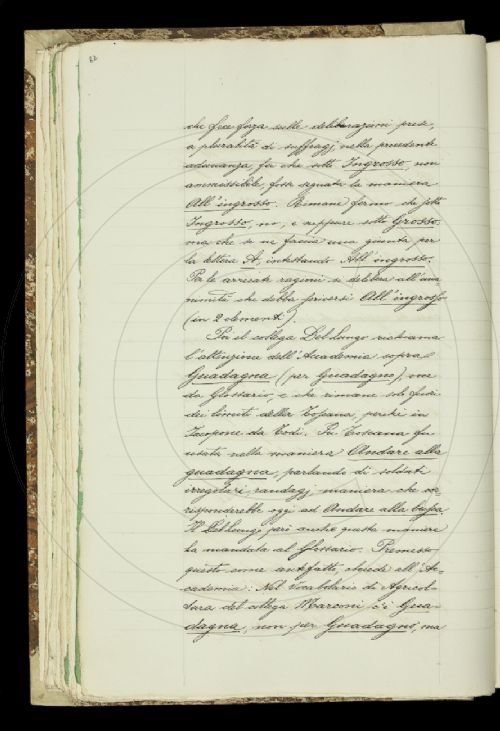 che fece forza sulle deliberazioni prese,
a pluralità di suffragj nella precedente
adunanza, fu che sotto Ingrosso, non
ammissibile, fosse segnata la maniera
All'ingrosso. Rimane fermo che sotto
Ingrosso, no, e neppure sotto Grosso,
ma che se ne faccia una giunta per
la lettera A, intestando All'ingrosso.
Per le arrecate ragioni si delibera all'una
nimità che debba scriversi All'ingrosso
(in 2 elementi).
Poi il collega Del Lungo richiama
l'attenzione dell'Accademia sopra
Guadagna (per Guadagno), voce
da Glossario, e che rimane sol fuori
dei limiti della Toscana, perché in
Jacopone da Todi. In Toscana fu
usata nella maniera Andare alla
guadagna, parlando di soldati
irregolari, randagj, maniera che cor
risponderebbe oggi ad Andare alla busca.
Il Del Lungo però anche questa maniera
la manda al Glossario. Premesso
questo come antefatto, chiede all'Ac-
cademia: Nel Vocabolario di Agricol-
tura del collega Marconi c'è Gua-
dagna, non per Guadagno, ma